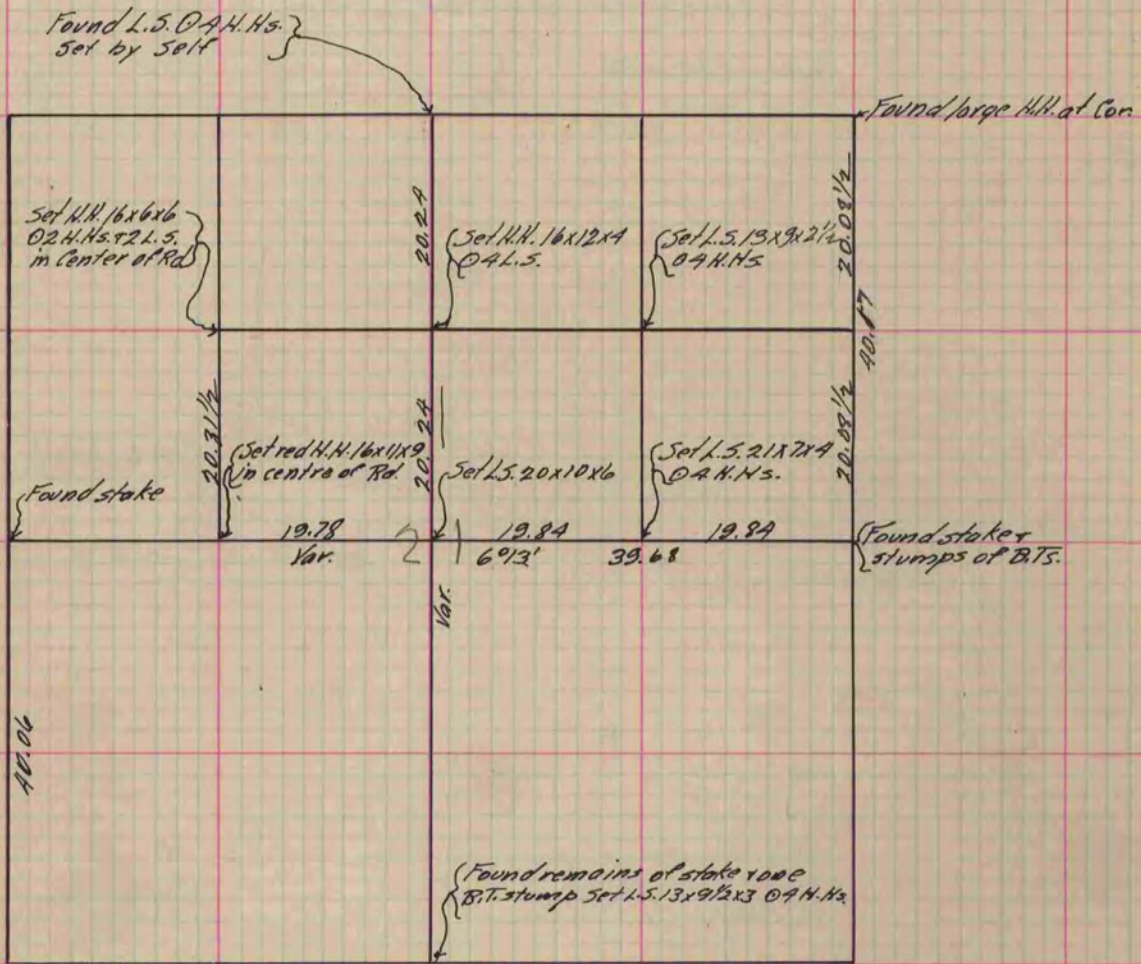 Found L.S. ⊙ 4 H.Hs.
Set by Self
Found large H.H. at Cor.
Set H.H. 16x6x6
⊙ 2 H.Hs. + 2 L.S.
in Center of Rd
20.24
Set H.H. 16x12x4
⊙ 4 L.S.
Set L.S. 13x9x2½
⊙ 4 H.Hs
20.08½
40.17
20.31½
Set red H.H. 16x11x9
in centre of Rd.
20.24
Set L.S. 20x10x6
Set L.S. 21x7x4
⊙ 4 H.Hs.
20.08½
Found stake
19.78
Var.
21
19.84
6°13'
39.68
19.84
Found stake +
stumps of B.Ts.
Var.
40.06
Found remains of stake + one
B.T. stump Set L.S. 13x9½x3 ⊙ 4 H.Hs.